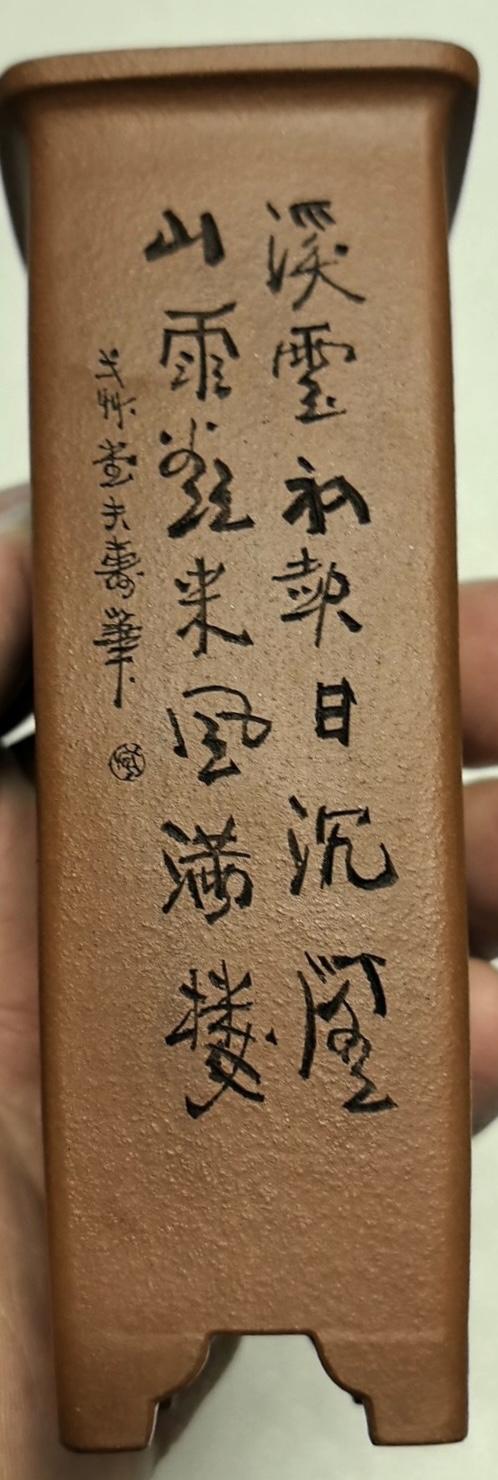 溪雲初起日沉閣
山雨欲來風滿樓
夫壽筆